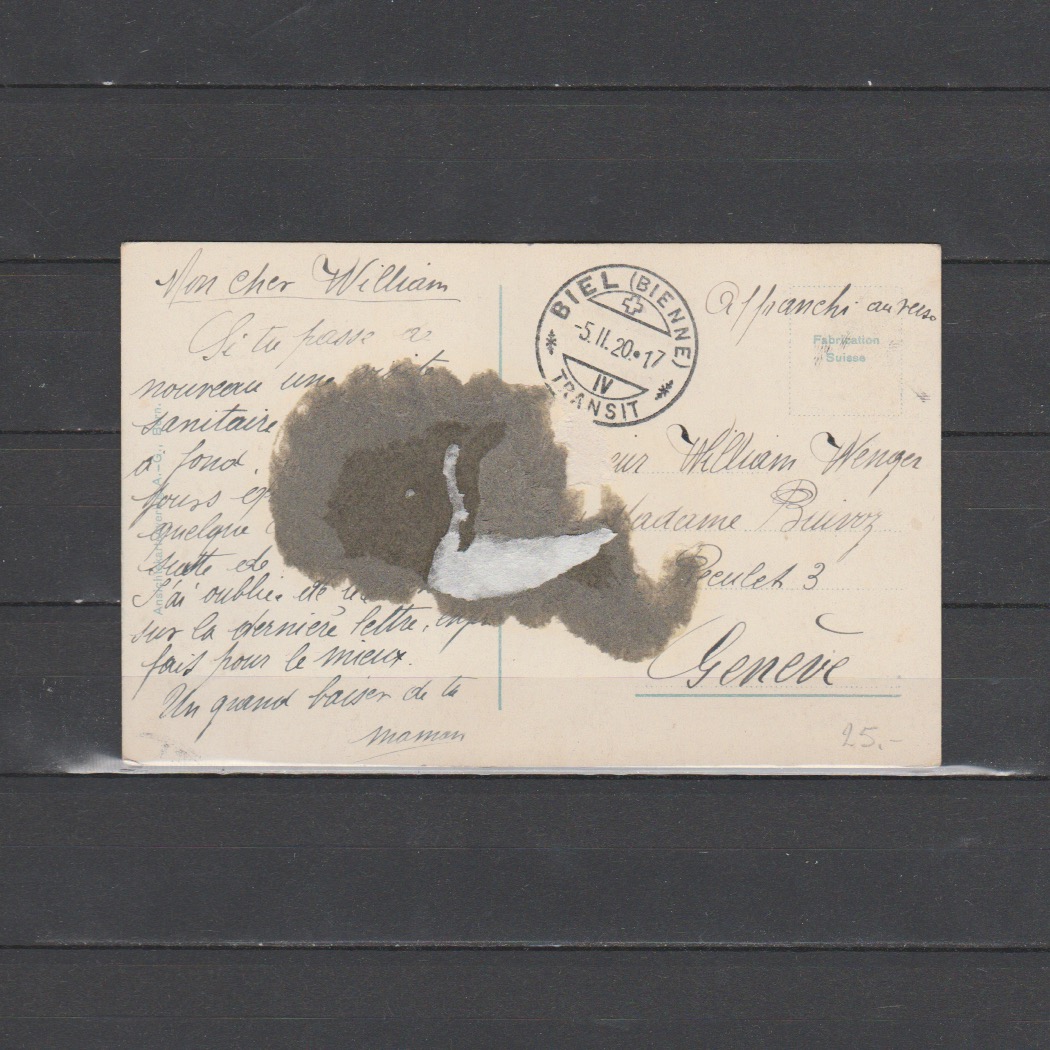 Mon cher William
Si tu passe de
nouveau une
sanitaire
a fond.
jours
quelque
suite de
J'ai oublié de
sur la dernière lettre,
fait pour le mieux.
Un grand baiser de ta
maman
Ansichtskarten A.-G. Bern.
BIEL (BIENNE)
-5.II.20•17
IV
TRANSIT
Affranchi au verso
Fabrication
Suisse
William Wenger
Madame
Reculet 3
Genève
25.-